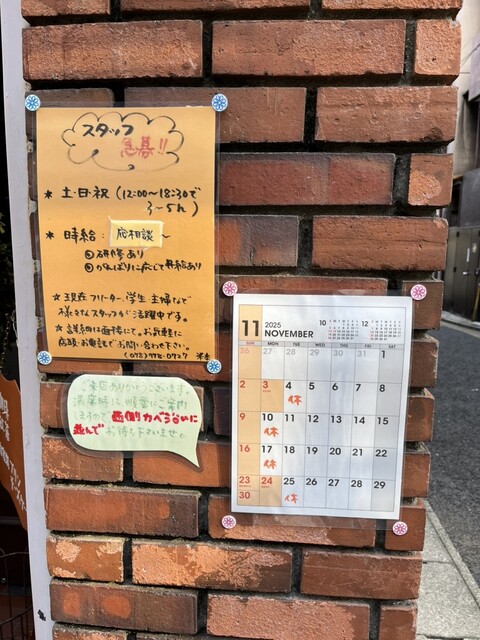 スタッフ
急募!!
★ 土・日・祝 (12:00〜18:30で
3〜5h)
★ 時給: 応相談〜
◎研修あり
◎がんばりに応じて昇給あり
☆ 現在フリーター、学生、主婦など
様々なスタッフが活躍中です。
☆ 詳細は面接にて。お気軽に
店頭・お電話でお問い合わせ下さい。
ご来店ありがとうございます。
満席時は順番にご案内
しますので西側カベぞいに
並んでお待ち下さいませ。
11 2025 NOVEMBER 10 12
SUN MON TUE WED THU FRI SAT
26 27 28 29 30 31 1
2 3 4 5 6 7 8
休
9 10 11 12 13 14 15
休
16 17 18 19 20 21 22
休
23 24 25 26 27 28 29
30 休